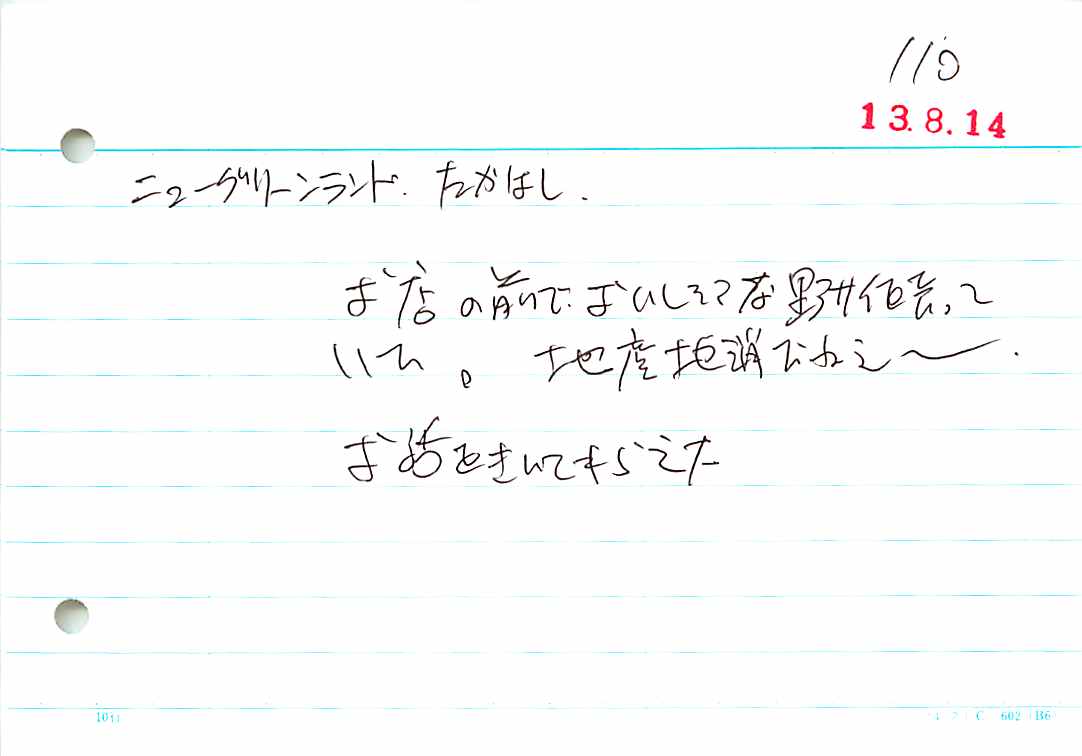 110
13.8.14
ニューグリーンランド. たかはし.
お店の前で.おいしそうな野サイ作って
いて。 地産地消でねえ〜.
お話をきいてもらえた
10行
C 602 (B6)